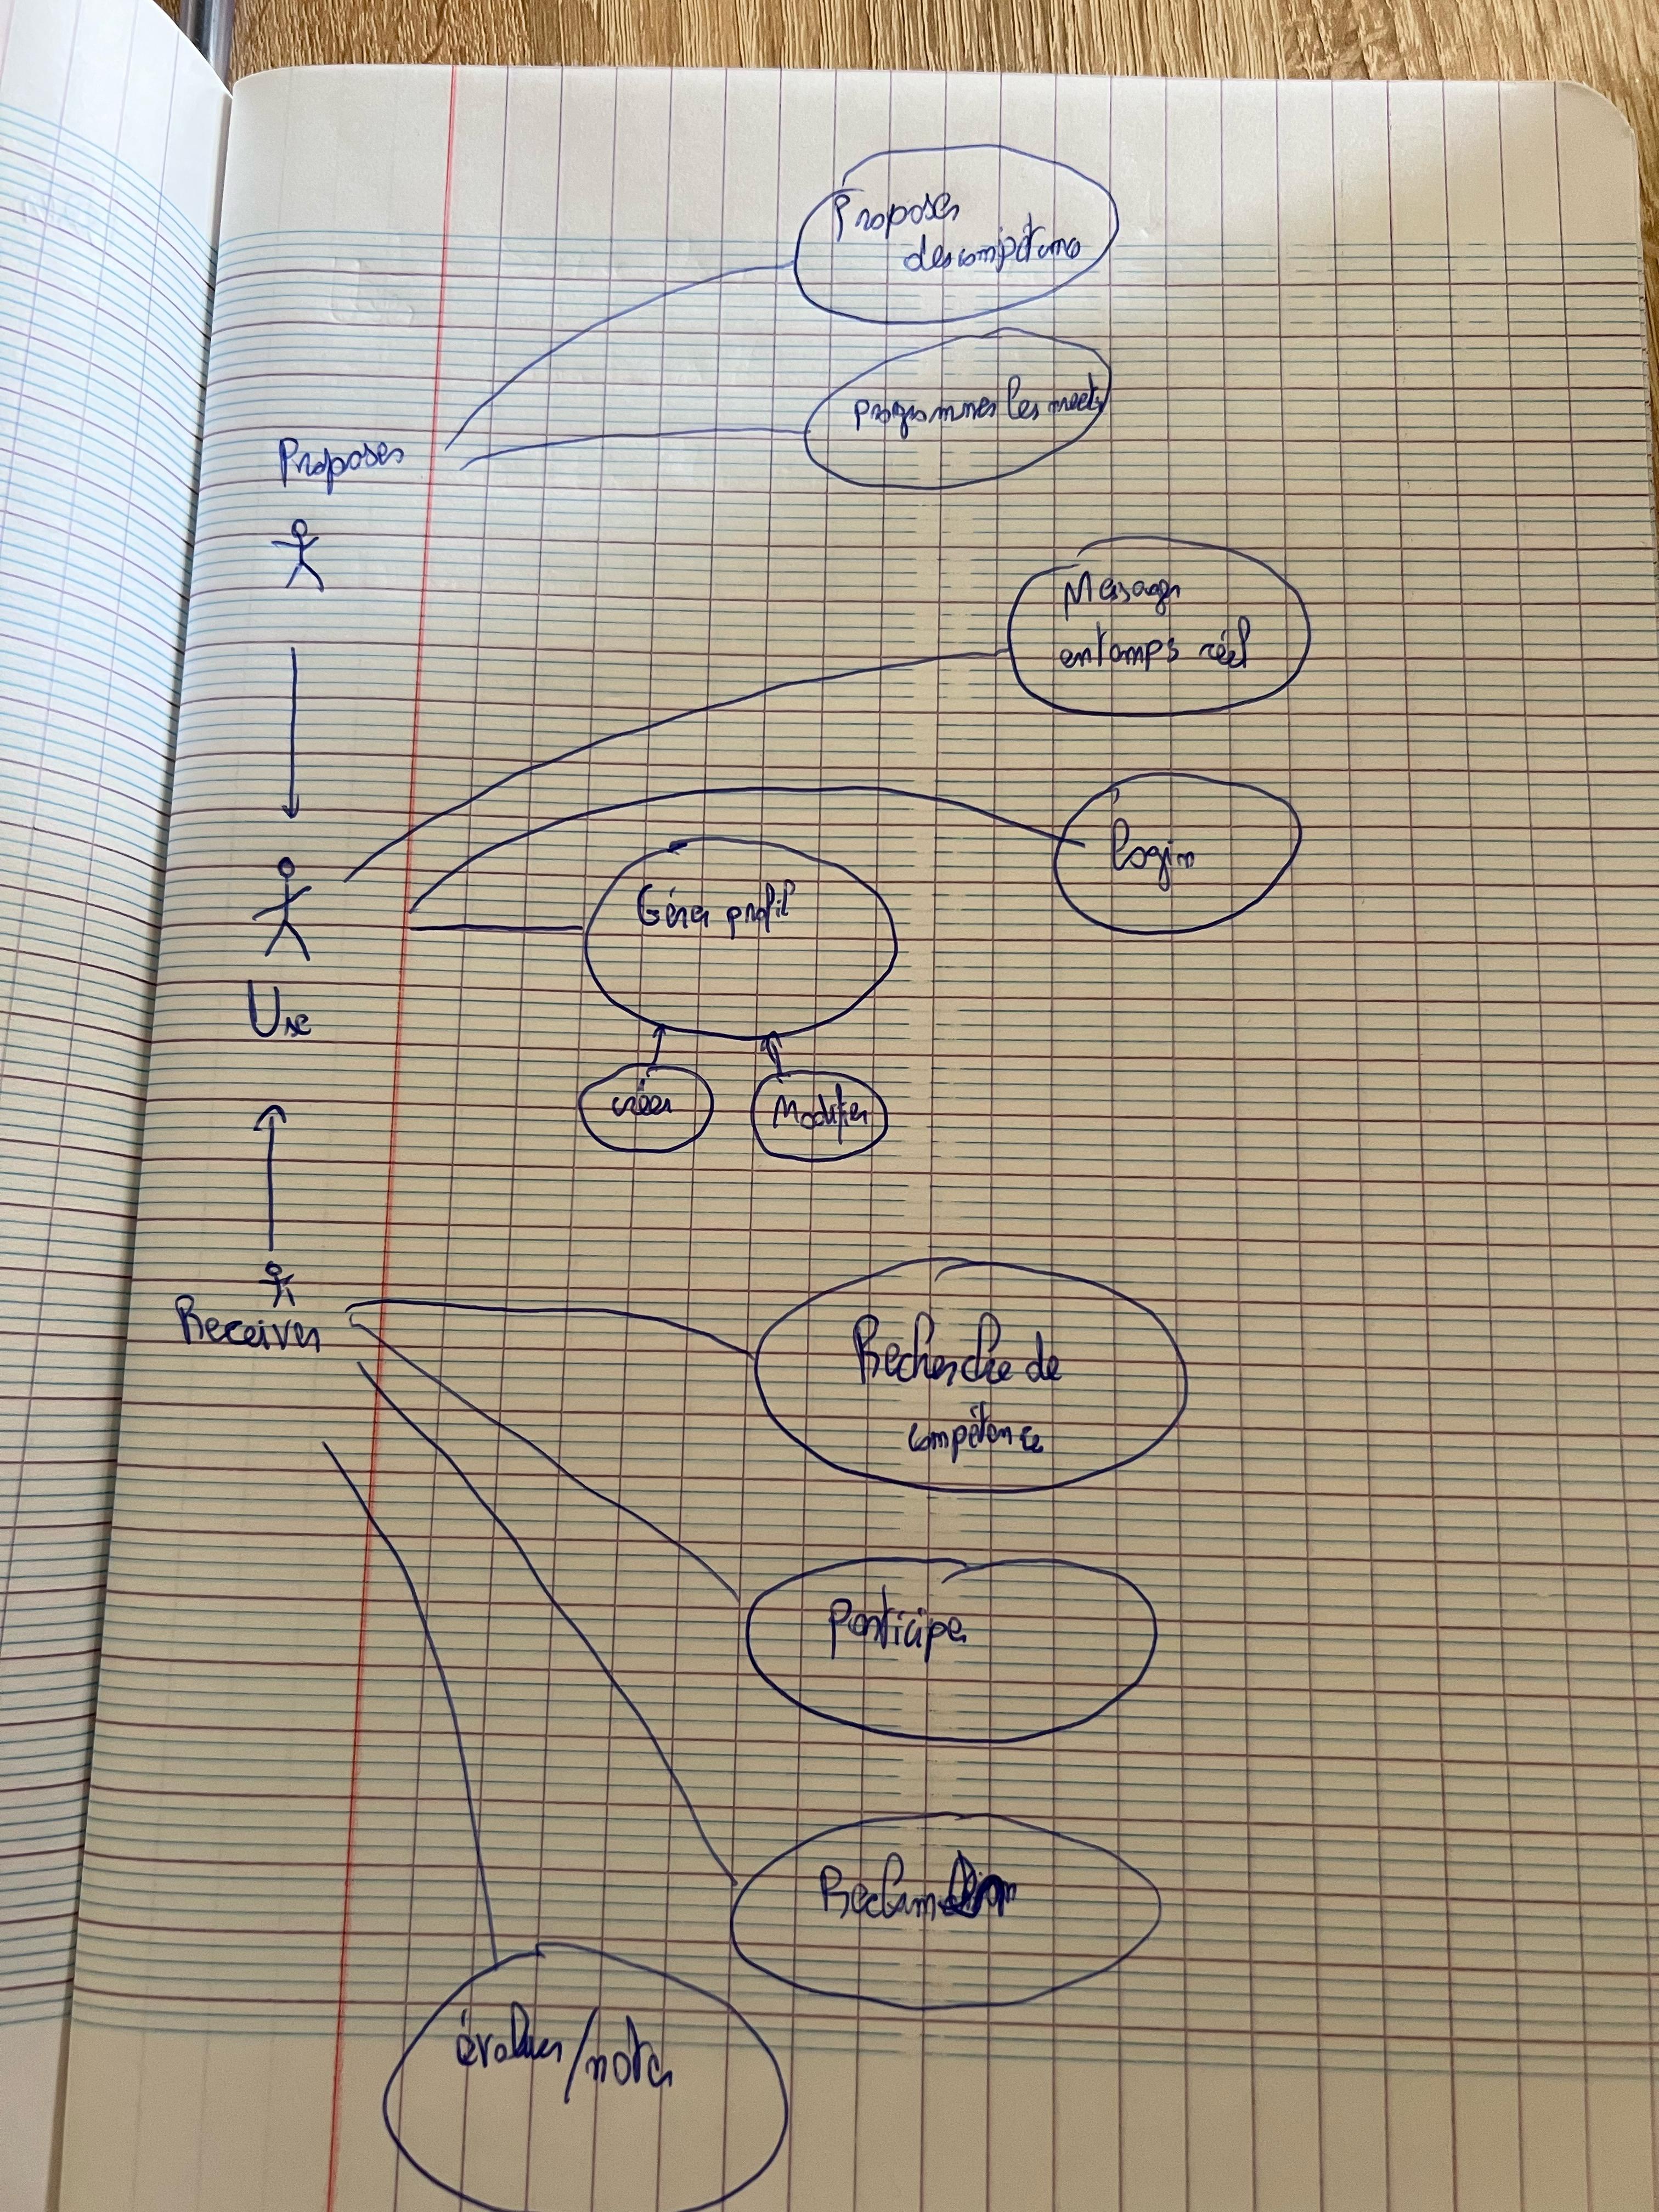 Proposer
des compétence
programmer les meets
Proposer
Message
en temps réel
login
Gérer profil
Use
créer
Modifier
Receiver
Recherche de
compétence
Participer
Reclamation
évaluer/noter